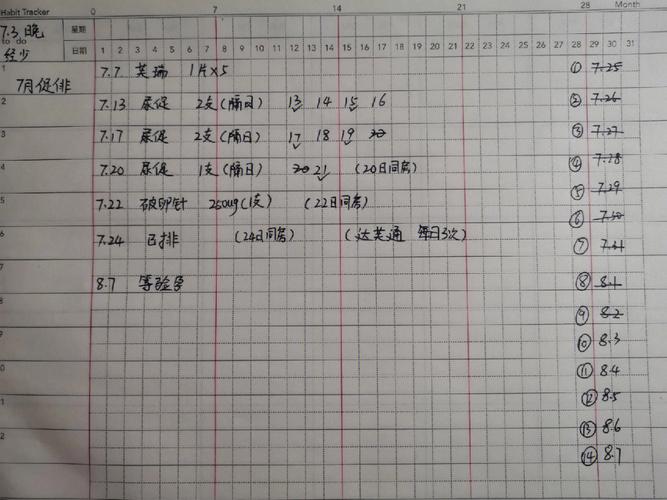 Habit Tracker 0 7 14 21 28 Month
7.3 晚 星期
to do 日期 1 2 3 4 5 6 7 8 9 10 11 12 13 14 15 16 17 18 19 20 21 22 23 24 25 26 27 28 29 30 31
经少
1 7.7 芙瑞 1片×5 ① 7.25
7月促排
2 7.13 尿促 2支(隔日) 13 14 15 16 ② 7.26
3 7.17 尿促 2支(隔日) 17 18 19 20 ③ 7.27
4 7.20 尿促 1支(隔日) 20 21 (20日同房) ④ 7.28
⑤ 7.29
5 7.22 破卵针 250ug(1支) (22日同房) ⑥ 7.30
6 7.24 已排 (24日同房) (达芙通 每日3次) ⑦ 7.31
7 8.7 等验孕 ⑧ 8.1
8 ⑨ 8.2
9 ⑩ 8.3
0 ⑪ 8.4
1 ⑫ 8.5
2 ⑬ 8.6
⑭ 8.7